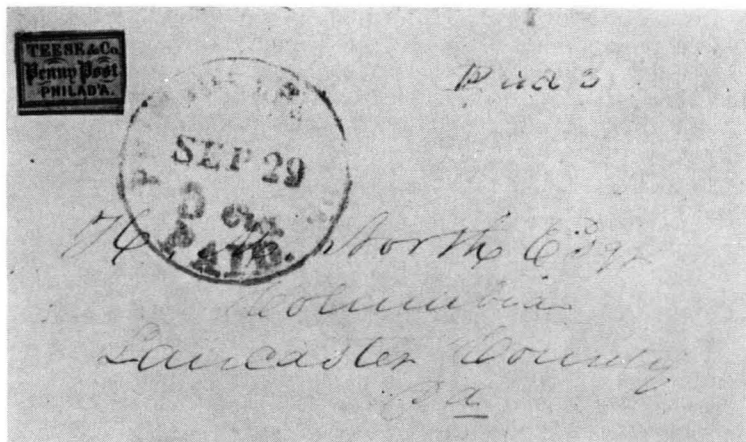 TEESE & Co.
Penny Post
PHILAD'A.
Paid 3
SEP 29
3 cts.
PAID.
H. M. North Esqr
Columbia
Lancaster County
Pa